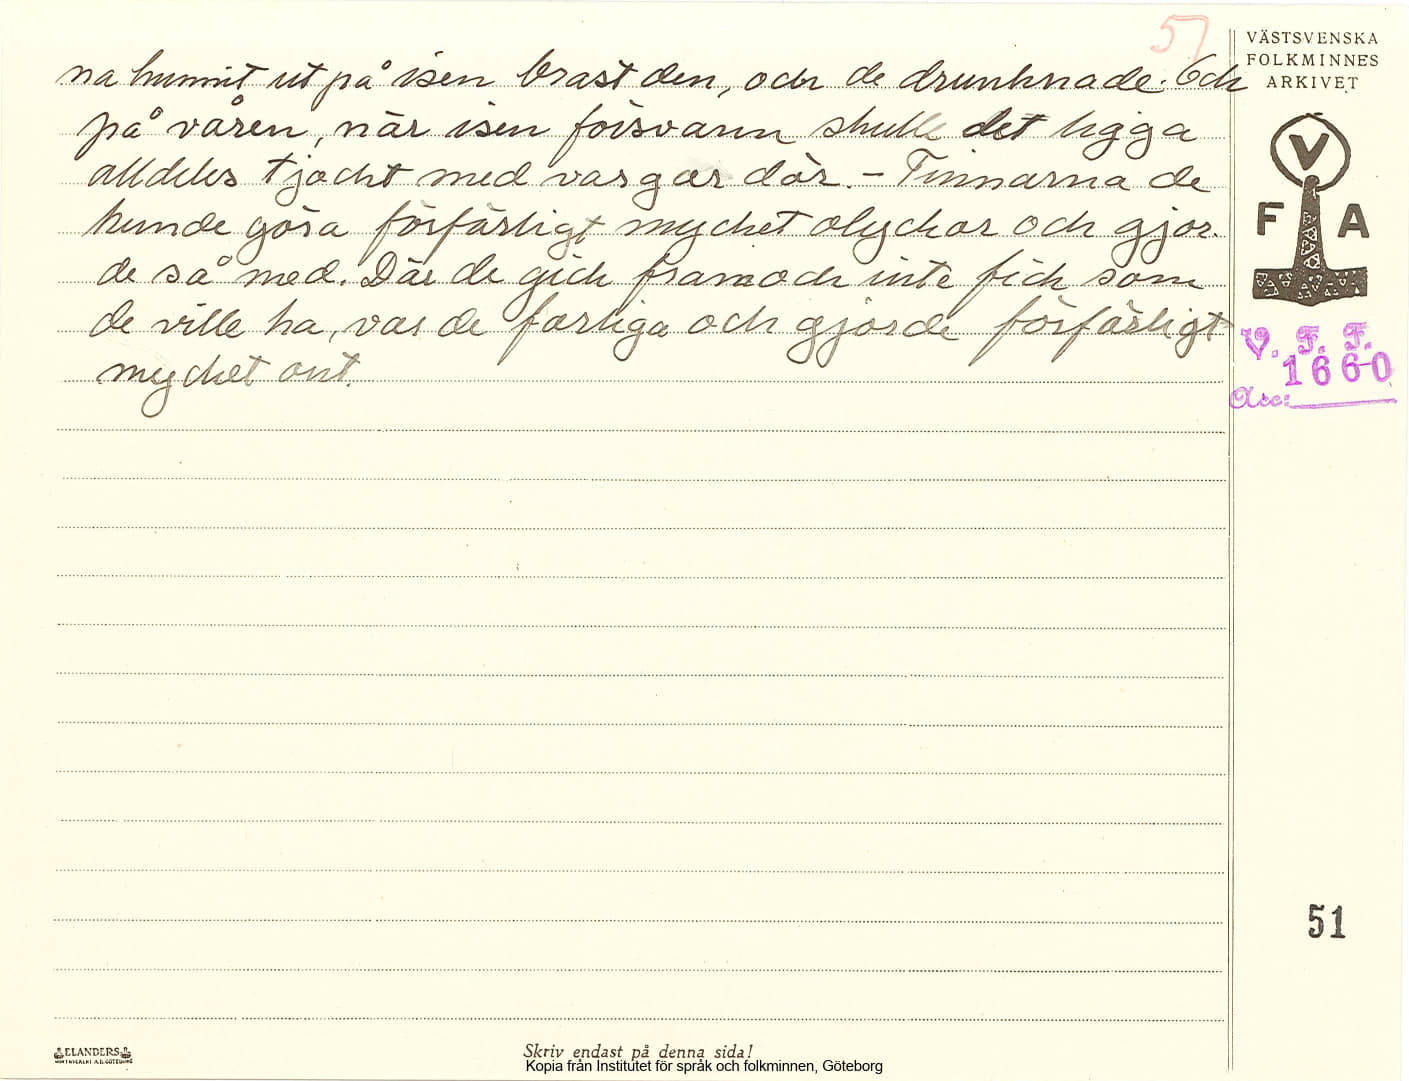 57
VÄSTSVENSKA
FOLKMINNES
ARKIVET
na hunnit ut på isen brast den, och de drunknade. Och
på våren, när isen försvann skulle det ligga
alldeles tjockt med vargar där. – Finnarna de
kunde göra förfärligt mycket olyckor och gjor-
de så med. Där de gick fram och inte fick som
de ville ha, var de farliga och gjorde förfärligt
mycket ont.
V
F A
V. F. F.
1660
Acc:
51
ELANDERS
Skriv endast på denna sida!
Kopia från Institutet för språk och folkminnen, Göteborg